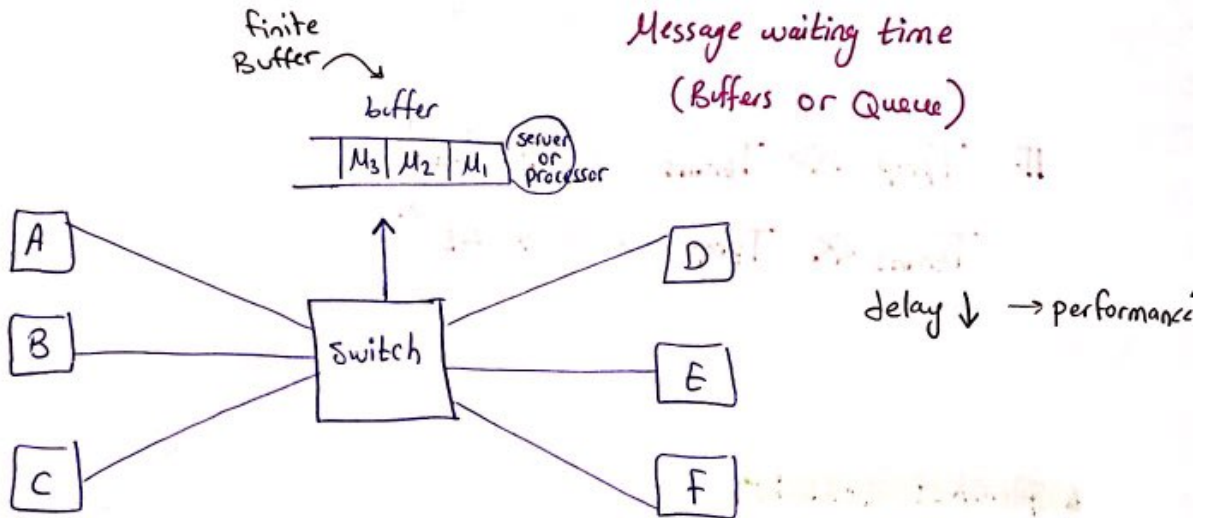 finite
Buffer
buffer
M₃ M₂ M₁
server
or
processor
Message waiting time
(Buffers or Queue)
A
B
C
Switch
D
E
F
delay ↓ → performance